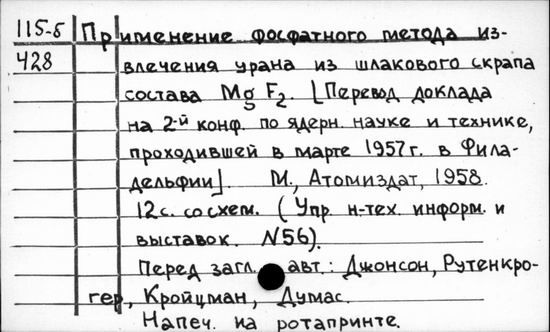 115-5 Применение фосфатного метода из-
428 влечения урана из шлакового скрапа
состава Mg F2. [Перевод доклада
на 2-й конф. по ядерн. науке и технике,
проходившей в марте 1957г. в Фила-
дельфии]. М., Атомиздат, 1958.
12с. со схем. (Упр. н-тех. информ. и
выставок. N56).
Перед загл. авт.: Джонсон, Рутенкро-
гер, Кройцман, Думас.
Напеч. на ротапринте.